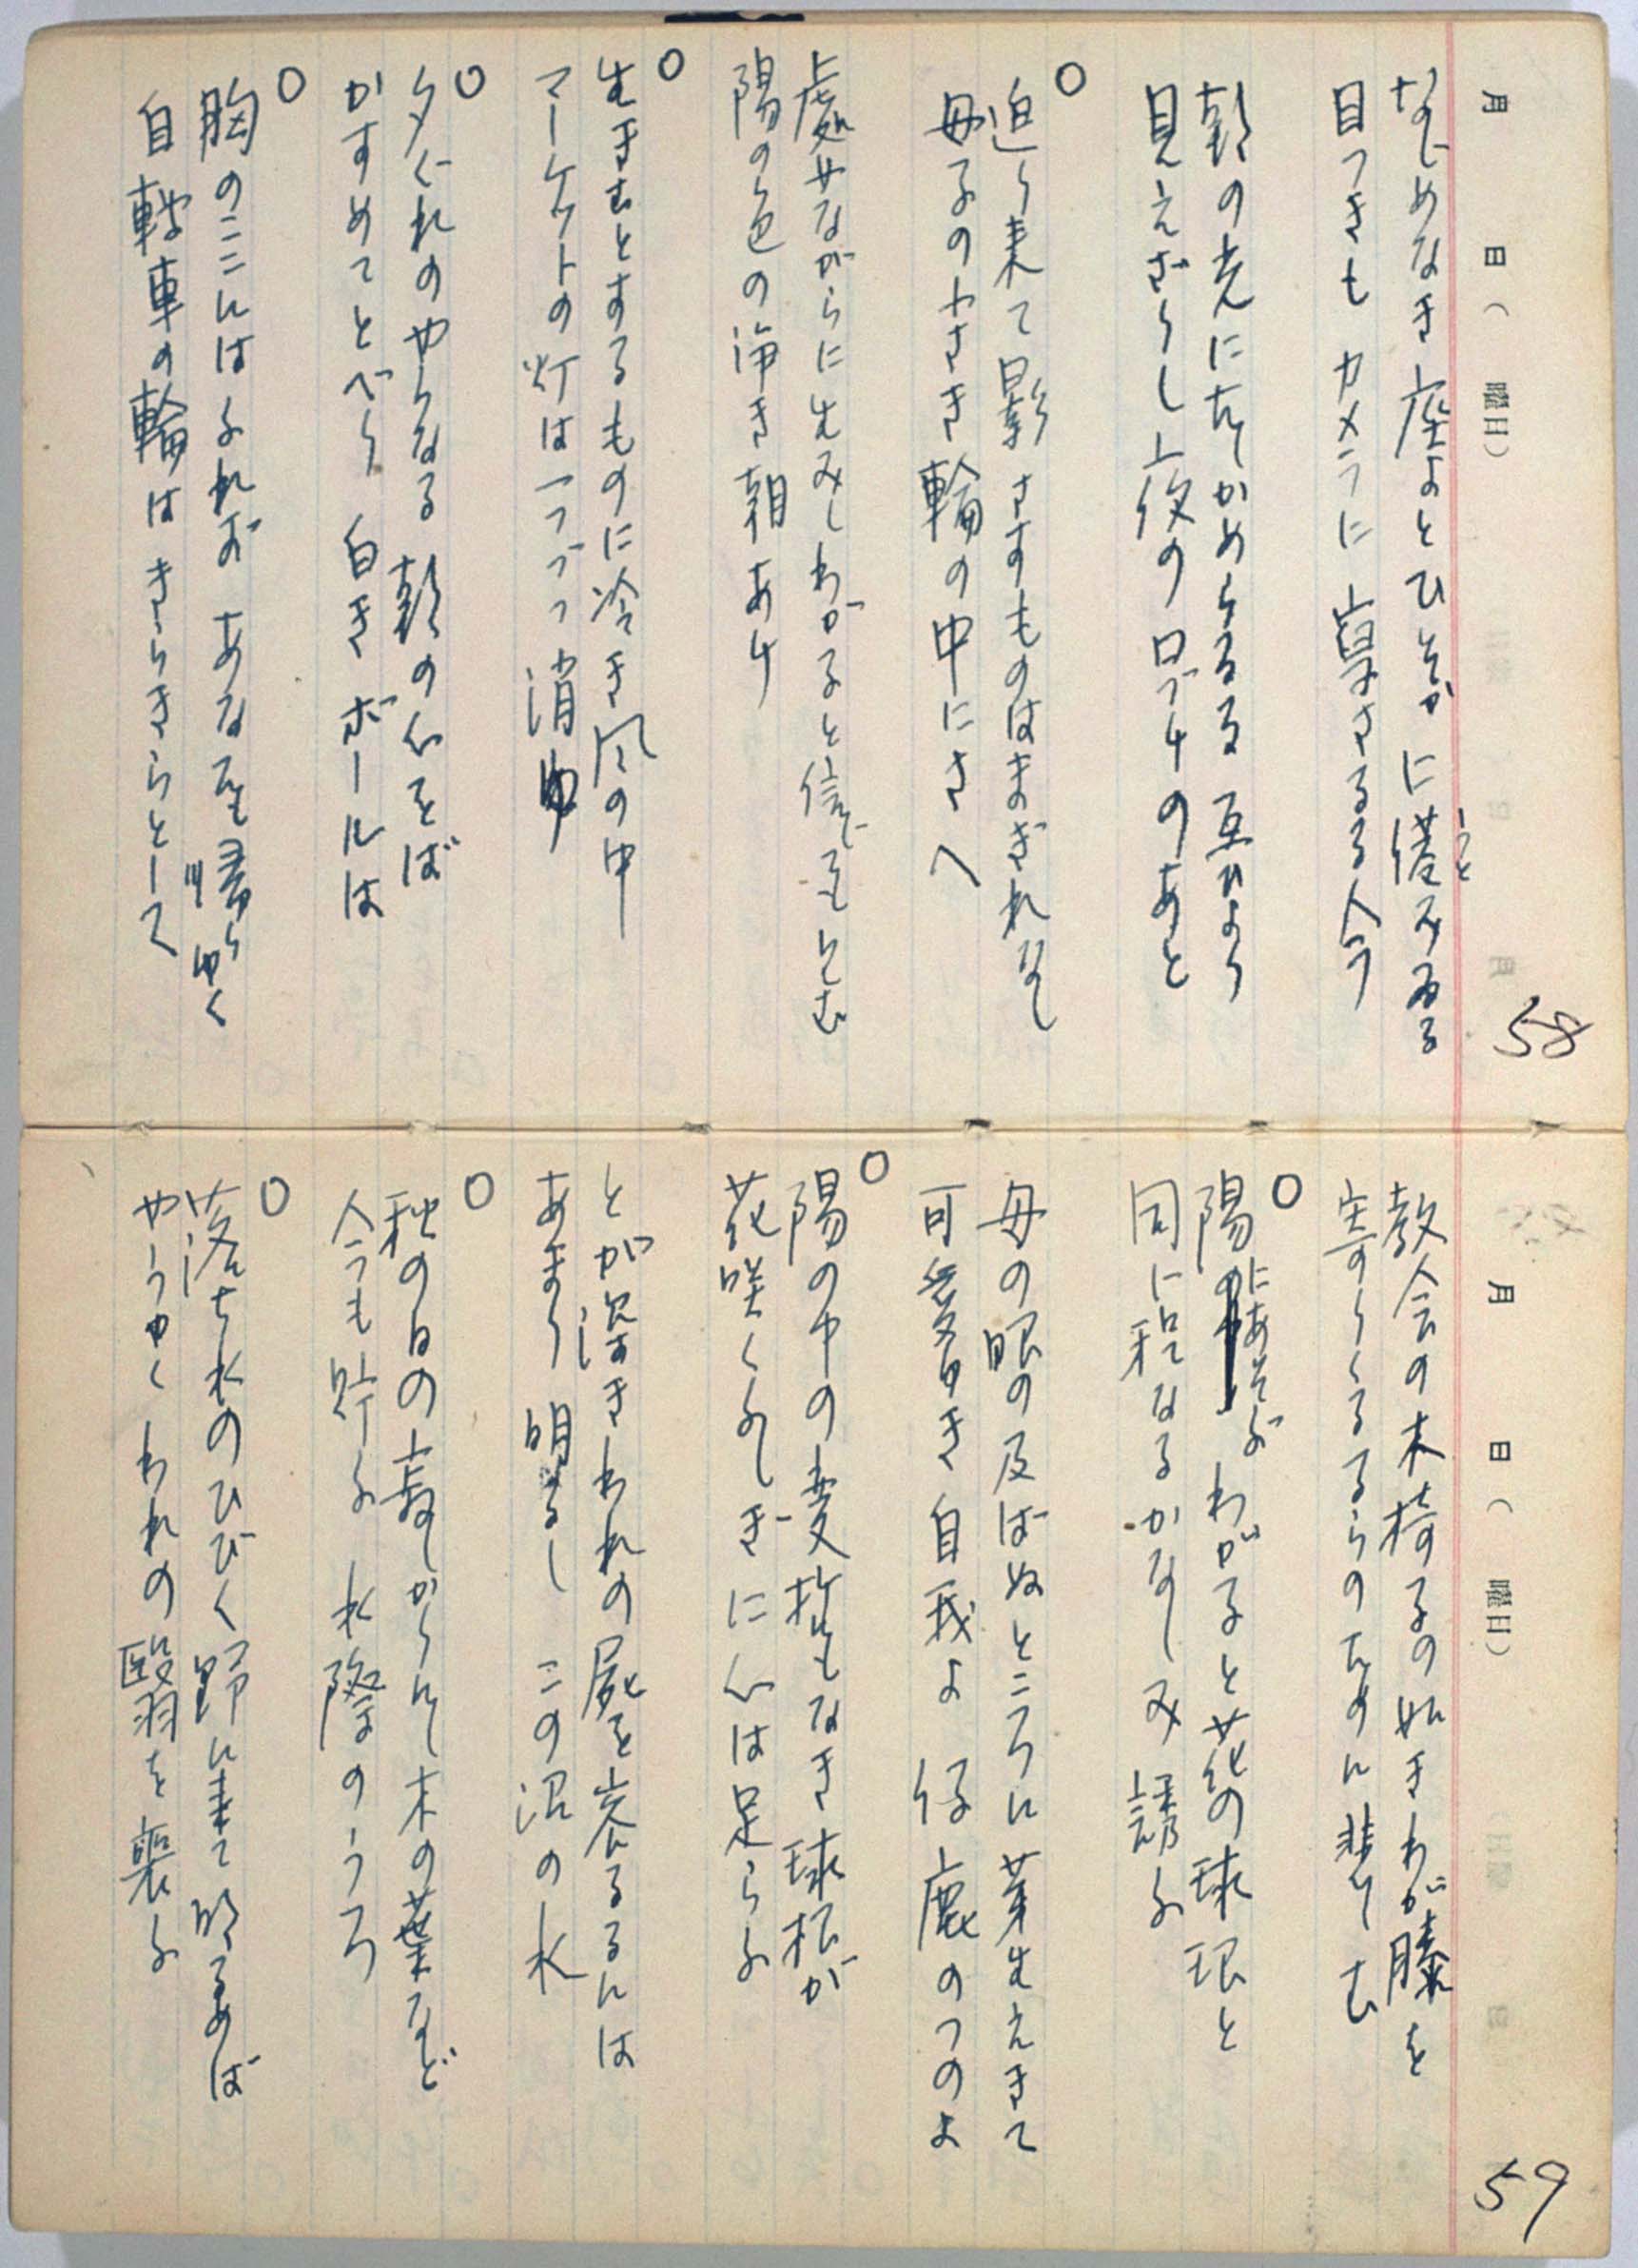 月 日( 曜日)
58
なじめなき座よとひそかに偿みゐる
目つきもカメラに写さるる今
朝の光にたしかめらるる互ひより
見えざりし夜のロづけのあと
○
迫り来て影さすものはまぎれなし
母子のやさき輪の中にさへ
處女ながらに生みしわが子と信じてゐむ
陽の色の浄き朝あけ
○
生きむとするものに冷き風の中
マーケットの灯は一つづつ消ゆ
○
夕ぐれのやうなる朝の心をば
かすめてとべり白きボールは
○
胸のここにはふれずあなたも帰りゆく
自転車の輪はきらきらとして
月 日( 曜日)
59
教会の木椅子の如きわが膝を
寄りくる子らのために悲しむ
○
陽にあそぶわが子と花の球根と
同じ程なるかなしみ誘ふ
母の眼の及ばぬところに芽生えきて
可愛き自我よ仔鹿のつのよ
○
陽の中の変哲もなき球根が
花咲くふしぎに心は足らふ
とが深きわれの屍を容るるには
あまり明るしこの沼の水
○
秋の日の寂しかりし木の葉など
今も貯ふ水際のうろ
○
落ち水のひびく野に来て明るめば
やうやくわれの翳を襲ふ